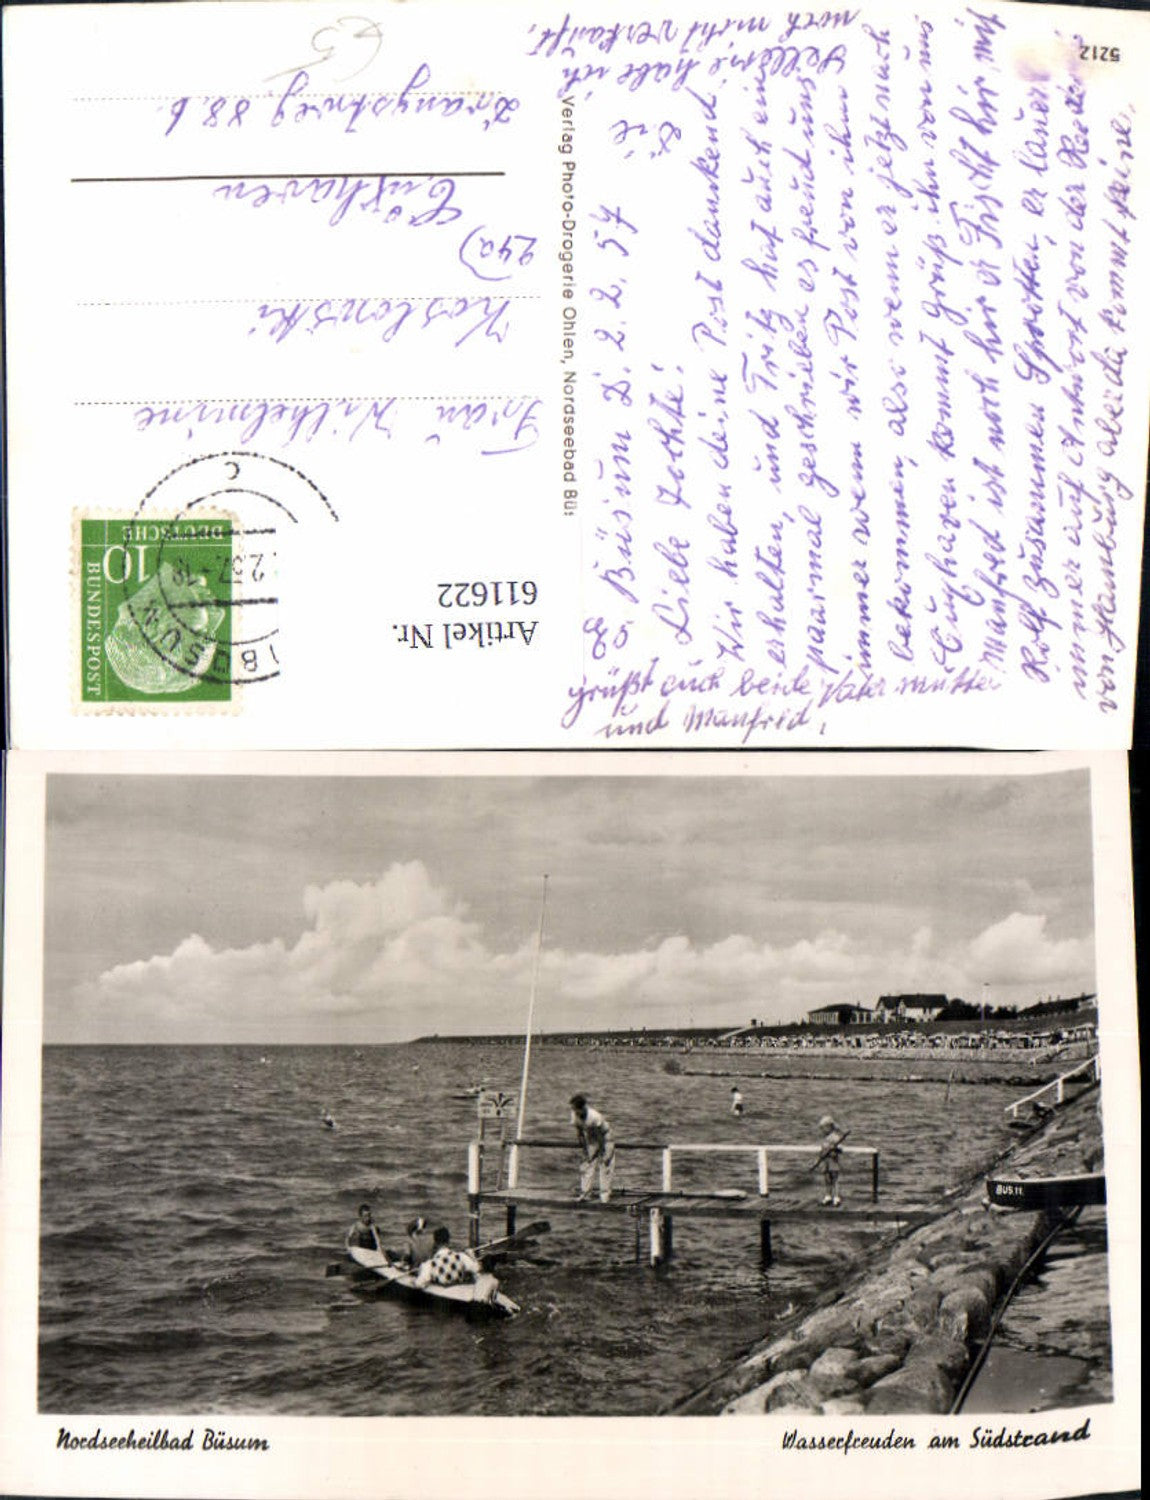 5212
Büsum D. 2. 2. 57
Liebe Tochte!
Wir haben deine Post dankend
erhalten, und Fritz hat auch ein
paarmal geschrieben es freud uns
immer wenn wir Post von ihm
bekommen, also wenn er jetzt nach
Cuxhaven kommt grüß ihn von uns
Manfred ist noch hir er Fischt hir mit
Rolf zusammen Sprotten, er lauert
immer auf Antwort von der Rederei
von Hamburg aber da kommt keine,
Sellerie habe ich
noch nicht verkauft,
grüßt euch beide Vater Mutter
und Manfred,
Verlag Photo-Drogerie Ohlen, Nordseebad Büs
DEUTSCHE
BUNDESPOST
10
2.57.-18
C
Frau Wilhelmine
Koslowski
24a) Cuxhaven
88.b.
Artikel Nr.
611622
BÜS.11.
Nordseeheilbad Büsum
Wasserfreuden am Südstrand